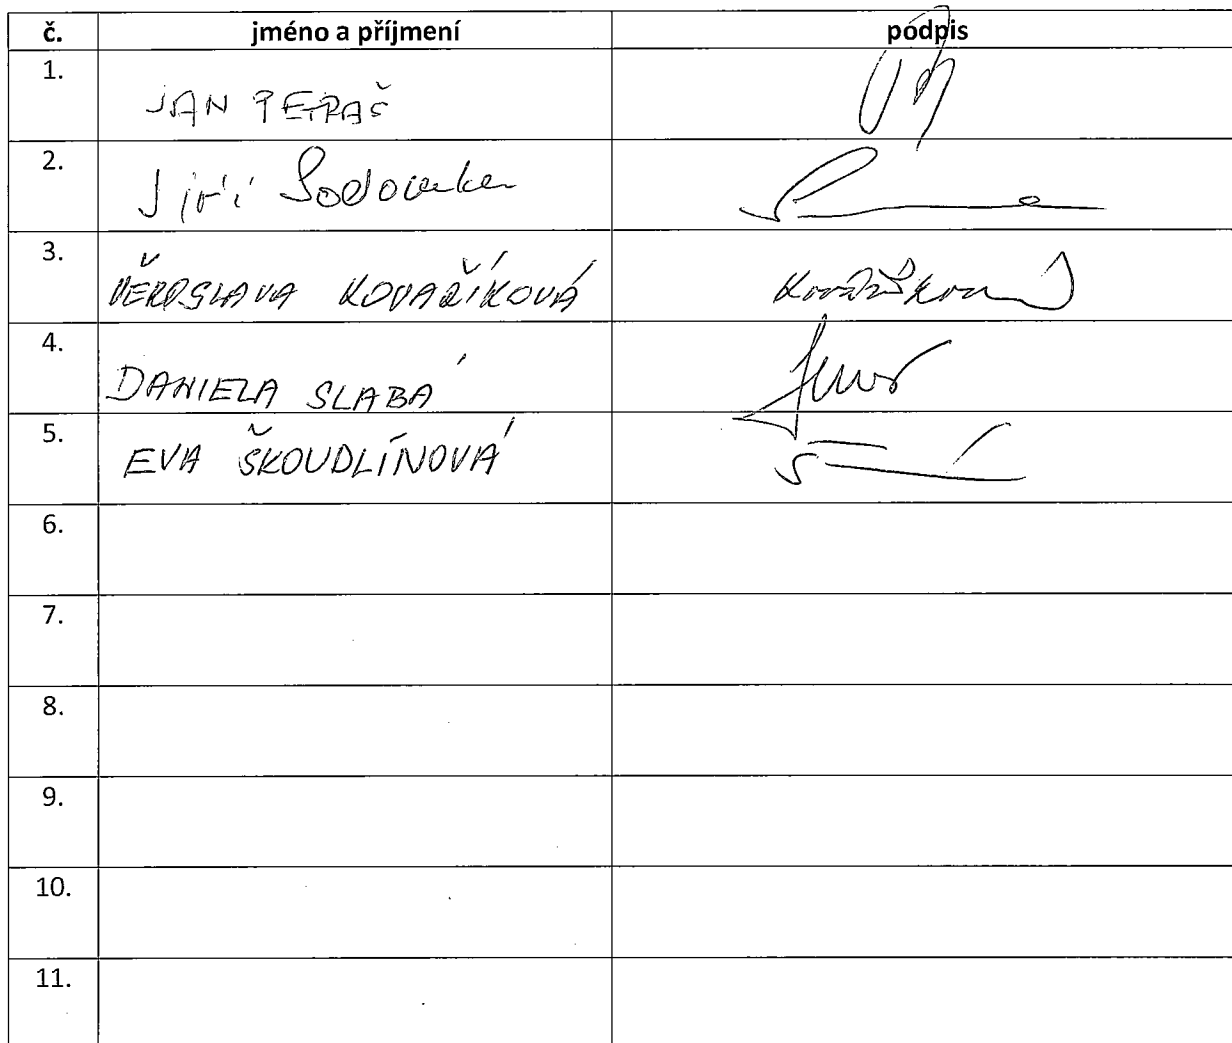 č. jméno a příjmení podpis
1. JAN PETRAŠ
2. Jiří
3. VĚROSLAVA KOVAŘÍKOVÁ
4. DANIELA SLABÁ
5. EVA ŠKOUDLÍNOVÁ
6.
7.
8.
9.
10.
11.